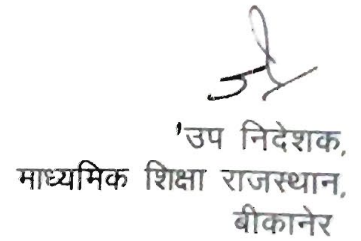 'उप निदेशक,
माध्यमिक शिक्षा राजस्थान,
बीकानेर